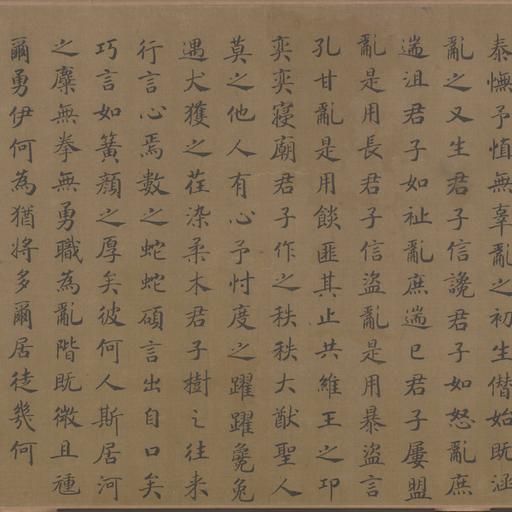 泰憮予慎無辜亂之初生僭始既涵
亂之又生君子信讒君子如怒亂庶
遄沮君子如祉亂庶遄已君子屢盟
亂是用長君子信盜亂是用暴盜言
孔甘亂是用餤匪其止共維王之卭
奕奕寢廟君子作之秩秩大猷聖人
莫之他人有心予忖度之躍躍毚兔
遇犬獲之荏染柔木君子樹之往来
行言心焉數之蛇蛇碩言出自口矣
巧言如簧顏之厚矣彼何人斯居河
之麋無拳無勇職為亂階既微且尰
爾勇伊何為猶將多爾居徒幾何